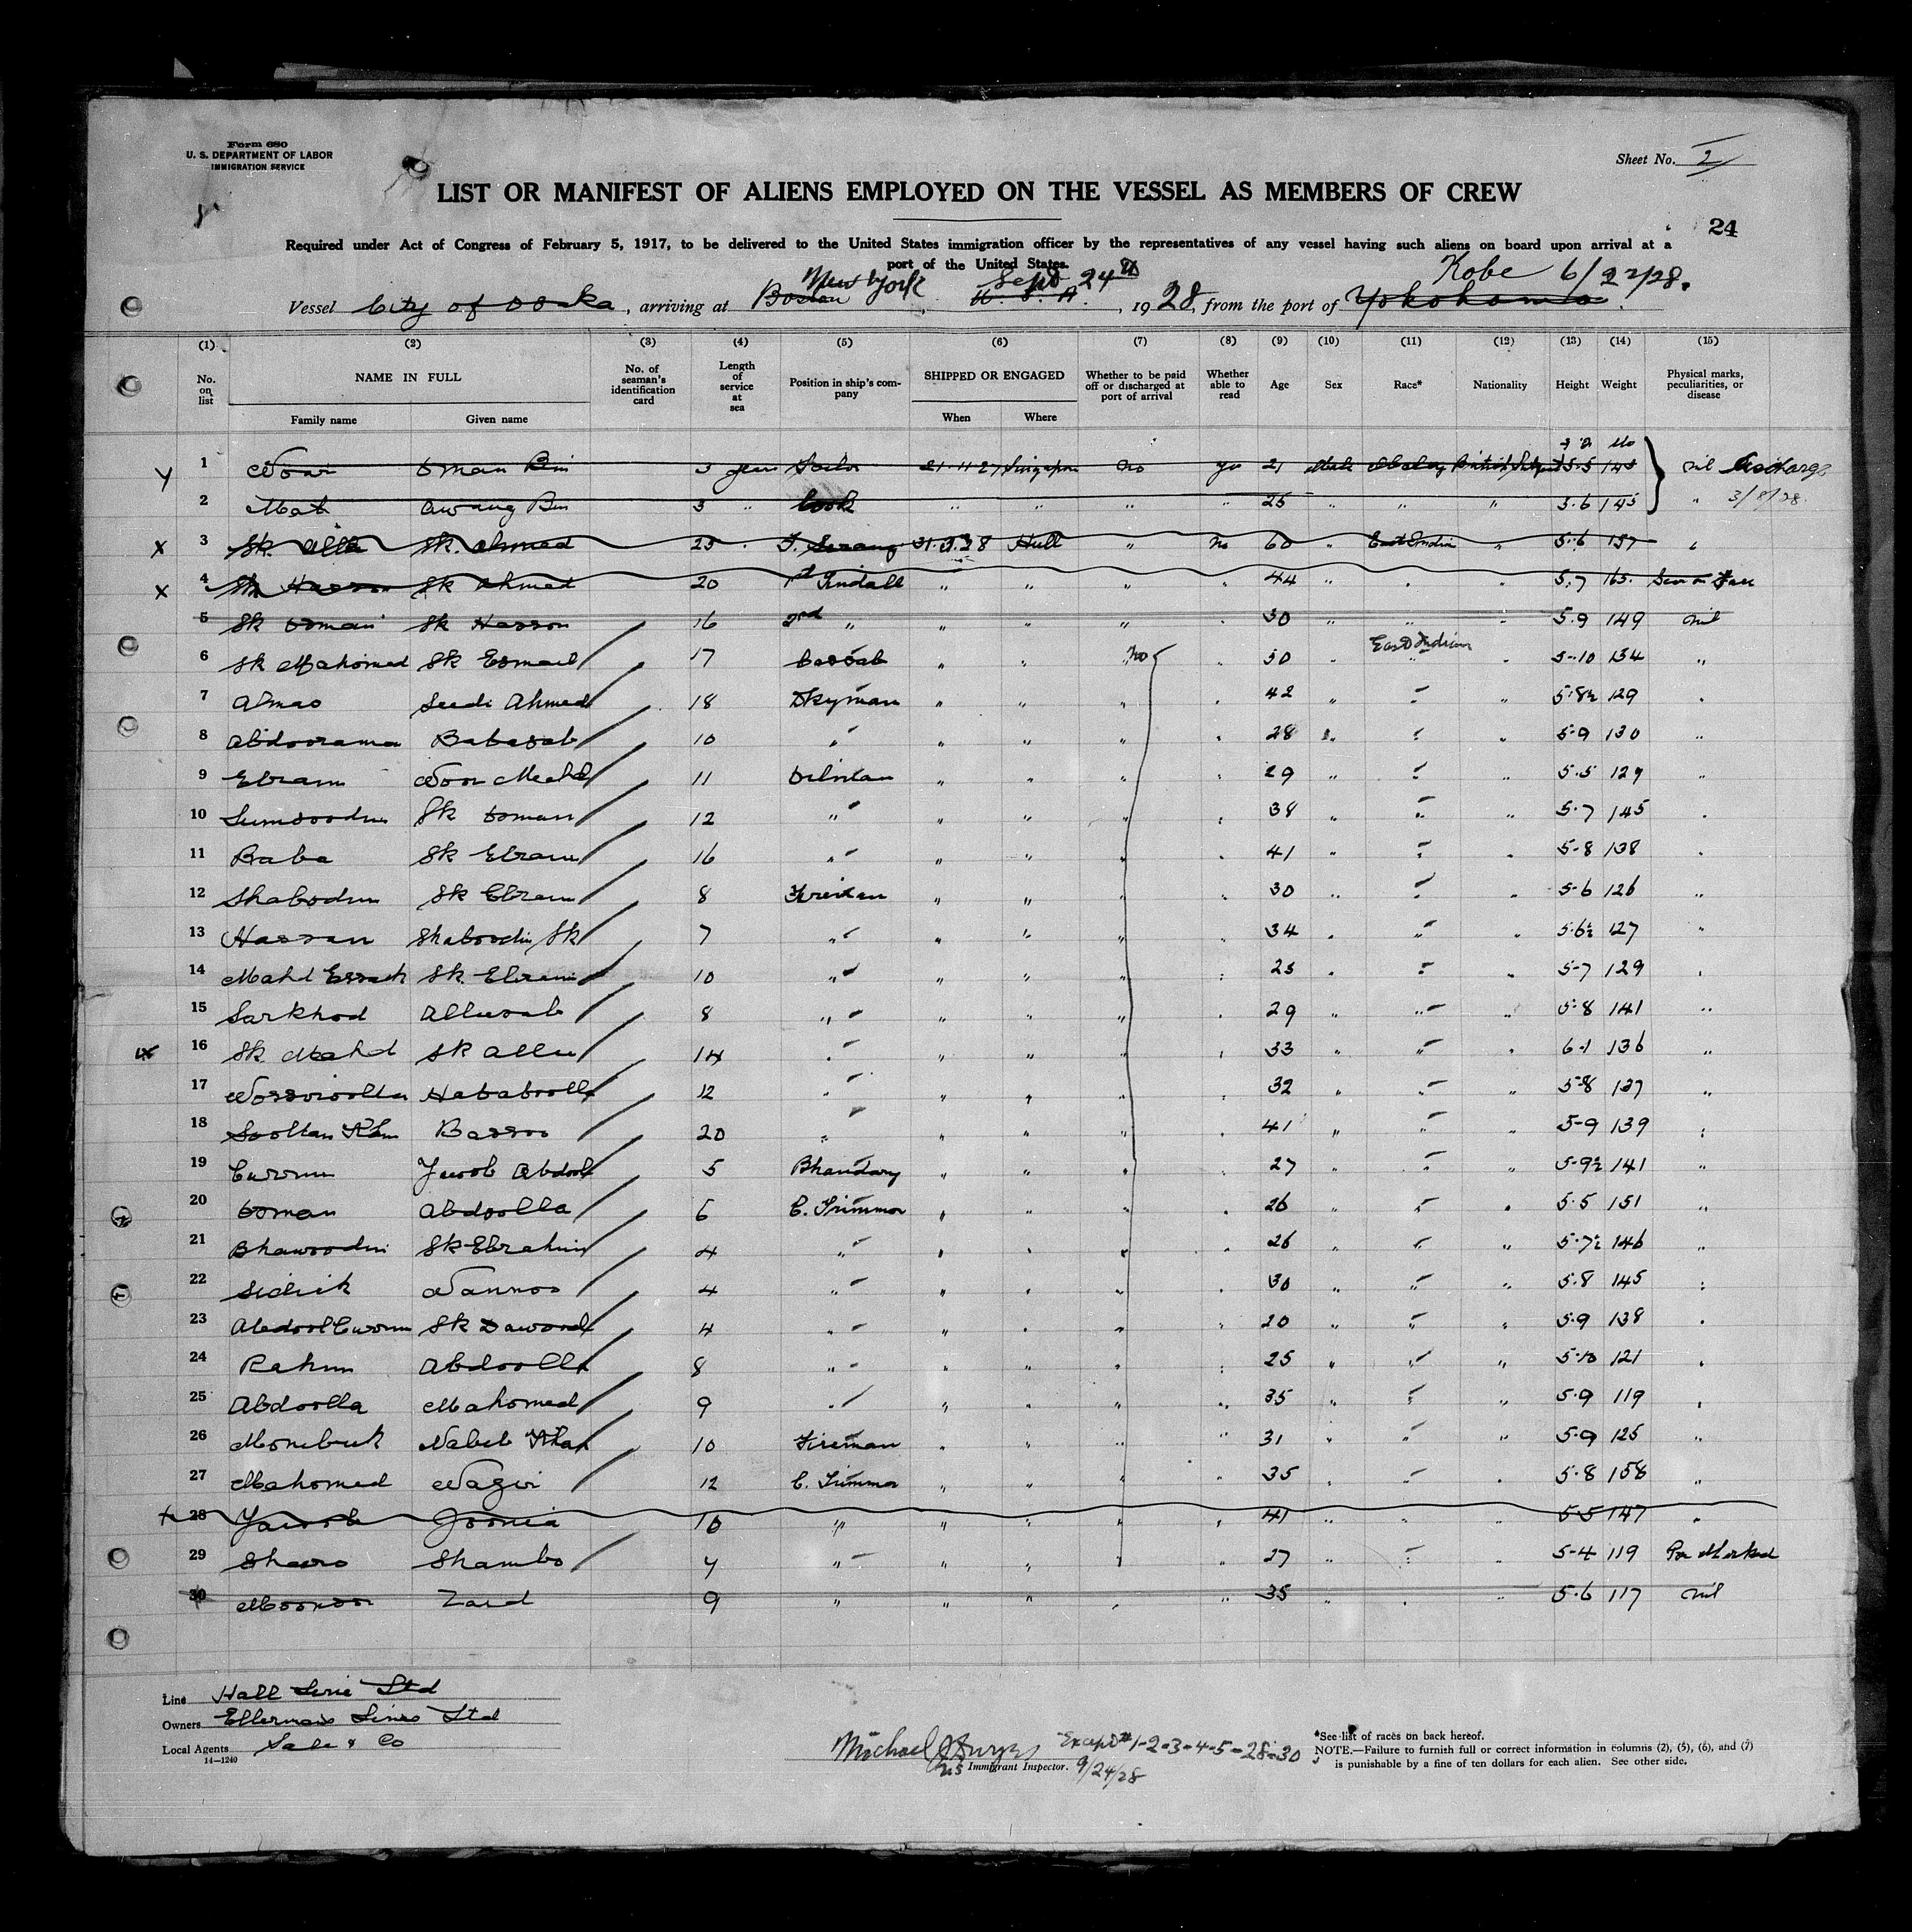 Form 680
U. S. DEPARTMENT OF LABOR
IMMIGRATION SERVICE
Sheet No. 2
LIST OR MANIFEST OF ALIENS EMPLOYED ON THE VESSEL AS MEMBERS OF CREW
24
Required under Act of Congress of February 5, 1917, to be delivered to the United States immigration officer by the representatives of any vessel having such aliens on board upon arrival at a
port of the United States.
New York Sept 24th Kobe 6/22/28.
Vessel City of Osaka, arriving at Boston, U. S. A., 1928, from the port of Yokohama.
(1) (2) (3) (4) (5) (6) (7) (8) (9) (10) (11) (12) (13) (14) (15)
No. on list NAME IN FULL No. of seaman's identification card Length of service at sea Position in ship's company SHIPPED OR ENGAGED Whether to be paid off or discharged at port of arrival Whether able to read Age Sex Race* Nationality Height Weight Physical marks, peculiarities, or disease
Family name Given name When Where
1 Osman Bin 3 years Sailor 21.11.27 Singapore No yes 21 Male Malay British Subject 5.5 143 nil discharge
2 Mat Awang Bin 3 " Cook " " " " 25 " " " 5.6 145 " 3/8/28.
3 Sk. Sk. Ahmed 25 " Serang Hull " No 60 " East Indian " 5.6 157 "
4 Sk Hassan Sk Ahmed 20 1st Tindall " " " " 44 " " " 5.7 165. Scar on Face
5 Sk Osman Sk Hassan 16 2nd " " " " " 30 " " " 5.9 149 nil
6 Sk Mahomed Sk Esmail 17 Cassab " " No " 50 East Indian " 5-10 134 "
7 Seedi Ahmed 18 Dkyman " " " " 42 " " " 5.8½ 129 "
8 Abdoorama Babasab 10 " " " " " 28 " " " 5-9 130 "
9 Ebram Noor Mahd 11 Oilman " " " " 29 " " 5.5 129 "
10 Sumsoodin Sk Osman 12 " " " " " 38 " " " 5.7 145 "
11 Baba Sk Ebram 16 " " " " " 41 " " " 5-8 138 "
12 Shabodin Sk Ebram 8 Fireman " " " " 30 " " " 5-6 126 "
13 Hassan Shaboodin Sk 7 " " " " " 34 " " " 5.6½ 127 "
14 Mahd Essack Sk. Ebram 10 " " " " " 25 " " 5-7 129 "
15 Sarkhod Alleesab 8 " " " " " 29 " " " 5-8 141 "
16 Sk Mahd Sk Allee 14 " " " " " 33 " " " 6-1 136 "
17 Hababoolla 12 " " " " " 32 " " " 5-8 127 "
18 Sooltan Khan 20 " " " " " 41 " " 5-9 139 "
19 Curreem Abdool 5 Bhandary " " " " 27 " " " 5-9½ 141 "
20 Osman Abdoolla 6 C. Trimmer " " " " 26 " " " 5.5 151 "
21 Bhawoodin Sk Ebrahim 4 " " " " " 26 " " " 5.7½ 146 "
22 Sidick 4 " " " " " 30 " " " 5.8 145 "
23 Sk Dawood 4 " " " " " 20 " " " 5.9 138 "
24 Rahim Abdoolla 8 " " " " " 25 " " " 5.10 121 "
25 Abdoolla Mahomed 9 " " " " " 35 " " " 5.9 119 "
26 Nabeb Khan 10 Fireman " " " " 31 " " 5.9 125 "
27 Mahomed Wazir 12 C. Trimmer " " " " 35 " " " 5.8 158 "
28 Yacoob Joonia 10 " " " " " 41 " " " 5-5 147 "
29 Shambo 4 " " " " " 27 " " " 5-4 119 Pox Marked
30 Zaid 9 " " " " " 35 " " " 5.6 117 nil
Line Hall Line Ltd
Owners Ellermans Lines Ltd
Local Agents Sale & Co
14—1240
Michael Except # 1-2-3-4-5-28-30
Immigrant Inspector. 9/24/28
*See list of races on back hereof.
NOTE.—Failure to furnish full or correct information in columns (2), (5), (6), and (7)
is punishable by a fine of ten dollars for each alien. See other side.